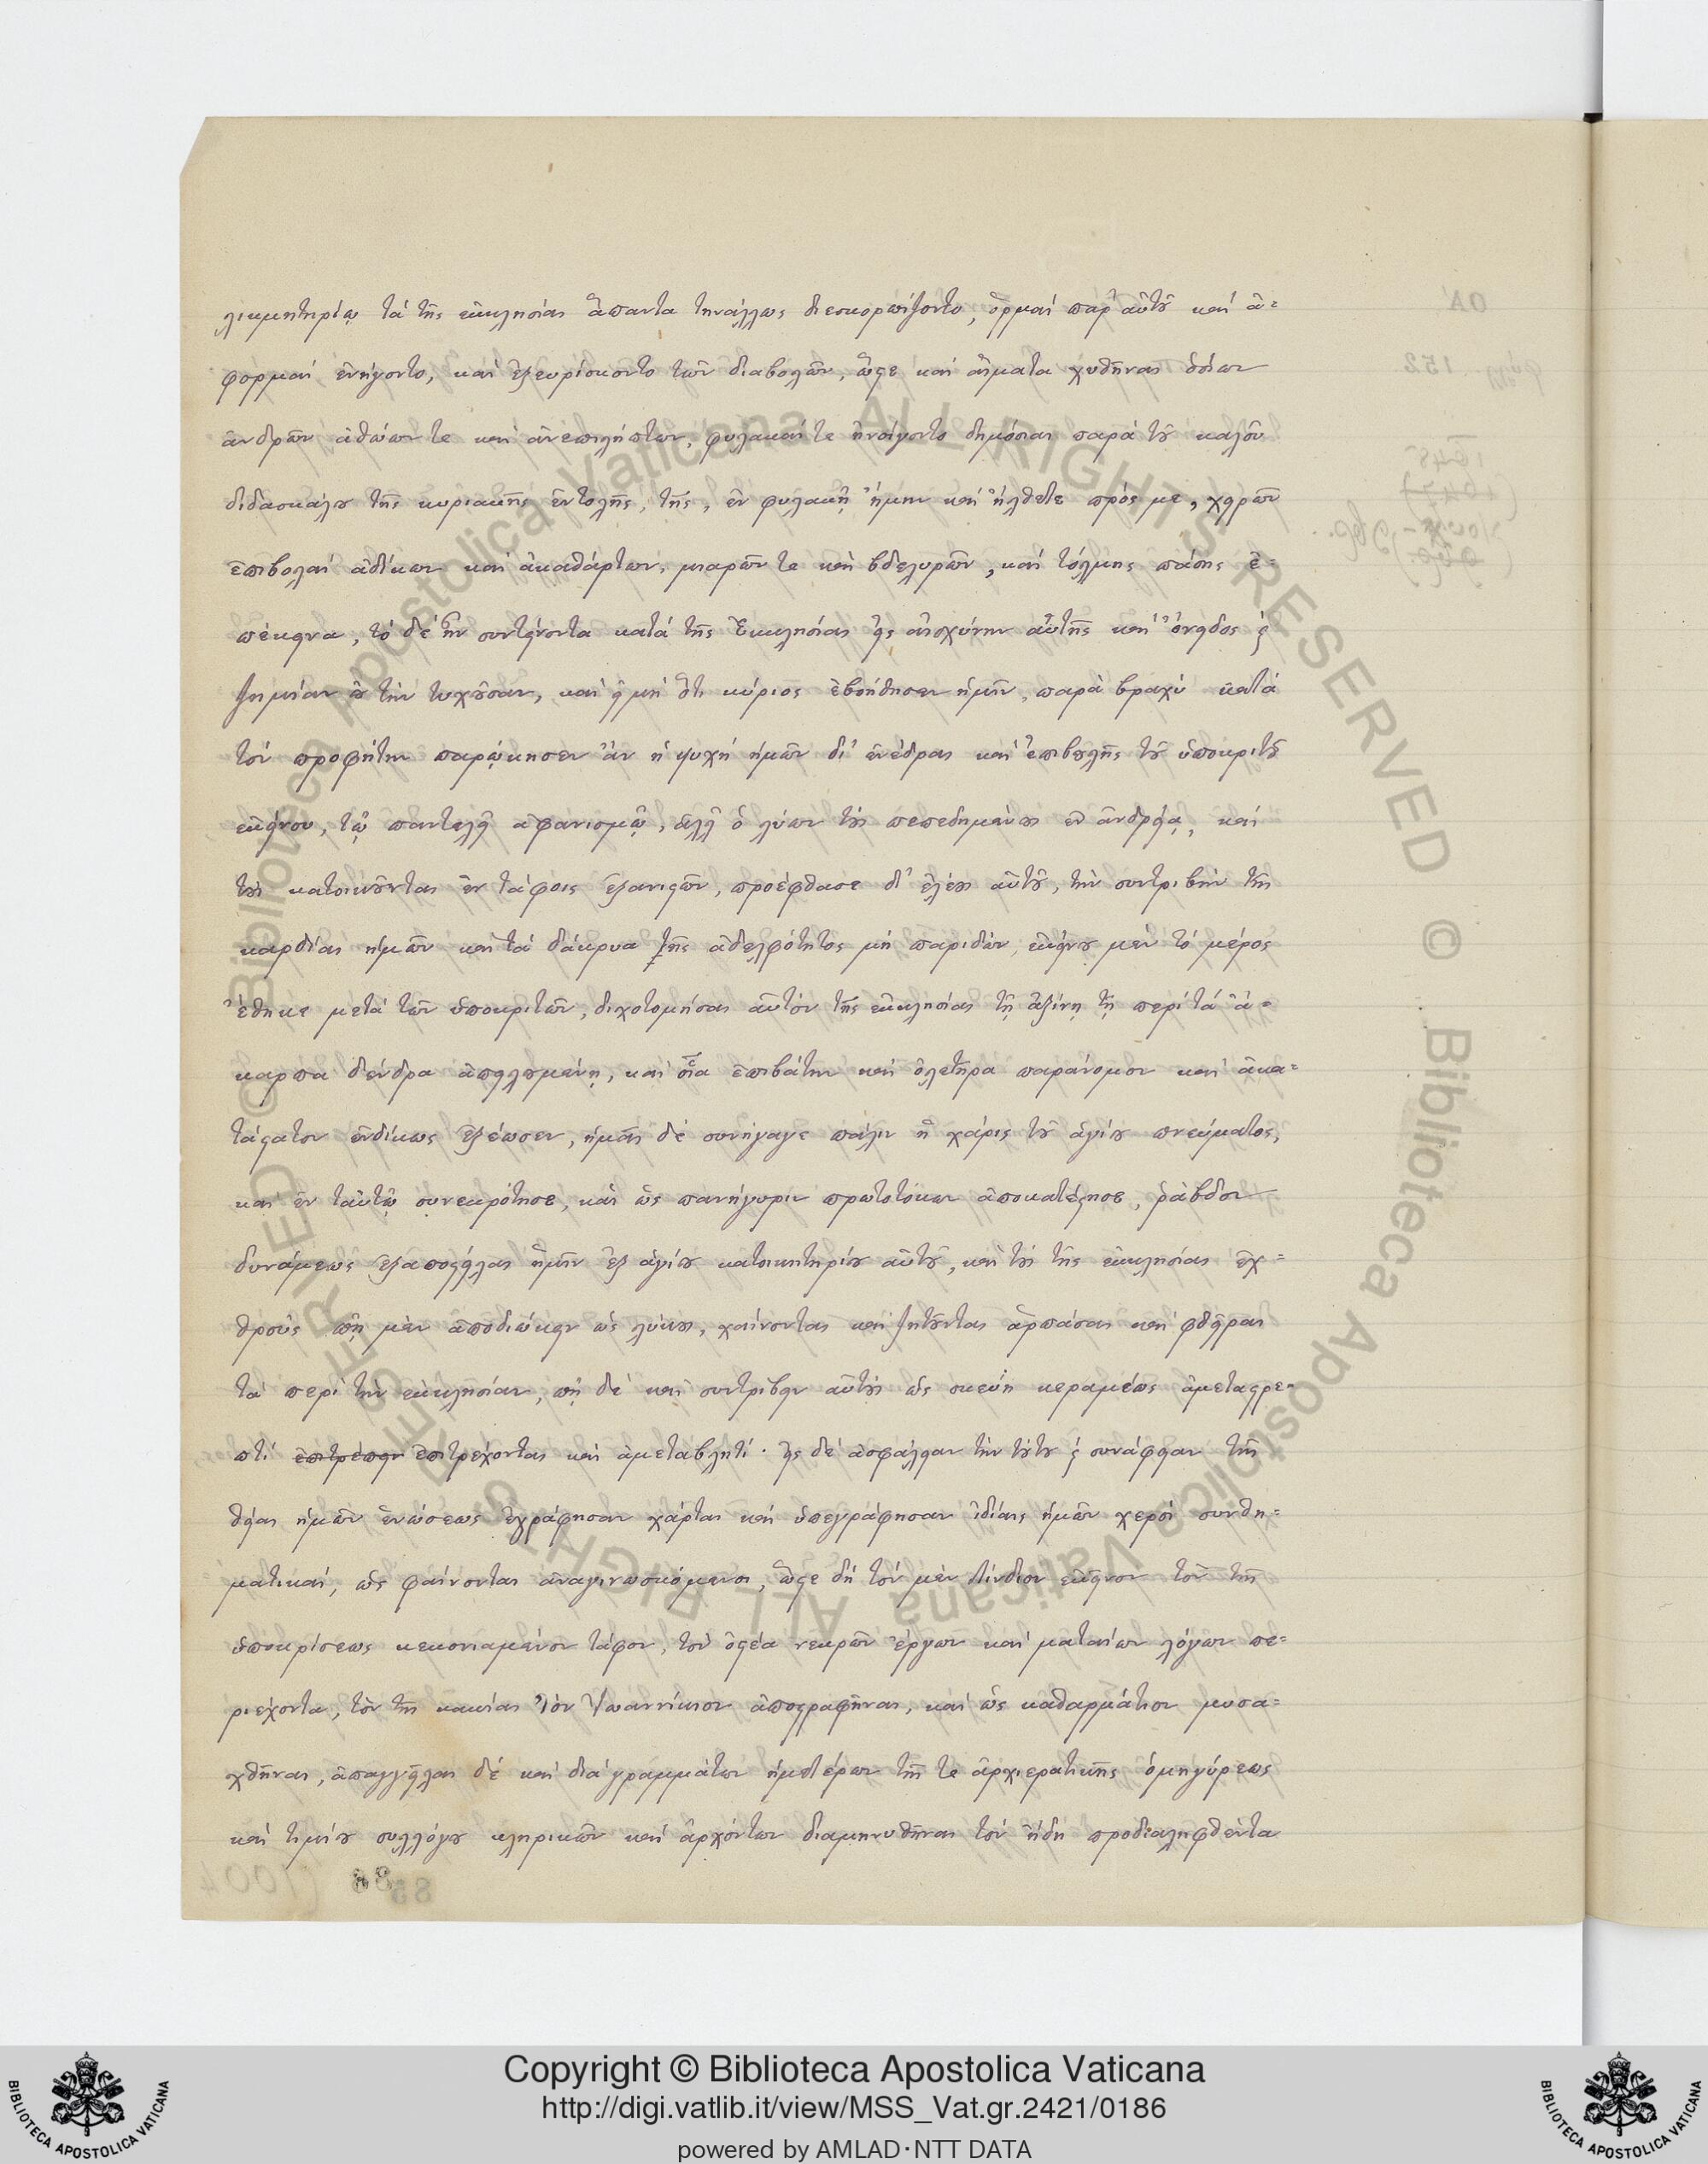 λικμητηρίῳ τὰ τῆς ἐκκλησίας ἅπαντα τηνάλλως διεσκορπίζοντο, ὁρμαί παρ' αὐτοῦ καί ἀ=
φορμαί ἐνήγοντο, καί ἐξευρίσκοντο τῶν διαβολῶν, ὥστε καί αἵματα χυθῆναι ὁσίων
ἀνδρῶν ἀθώων τε καί ἀνεπιλήπτων, φυλακαί τε ἠνοίγοντο δημόσιαι παρά τοῦ καλοῦ
διδασκάλου τῆς κυριακῆς ἐντολῆς, τῆς, ἐν φυλακῇ ἤμην καί ἤλθετε πρός με, χειρῶν
ἐπιβολαί ἀδίκων καί ἀκαθάρτων, μιαρῶν τε καὶ βδελυρῶν, καί τόλμης πάσης ἐ=
πέκεινα, τό δέ ἦν συντείνοντα κατά τῆς Ἐκκλησίας εἰς αἰσχύνην αὐτῆς καί ὄνειδος ϛ
ζημίαν οὐ τὴν τυχοῦσαν, καί εἰ μή ὅτι κύριος ἐβοήθησεν ἡμῖν, παρὰ βραχύ κατά
τόν προφήτην παρῴκησεν ἄν ἡ ψυχή ἡμῶν δι' ἐνέδρας καί ἐπιβουλῆς τοῦ ὑποκριτοῦ
ἐκείνου, τῷ παντελεῖ ἀφανισμῷ, ἀλλ' ὁ λύων τούς πεπεδημένους ἐν ἀνδρείᾳ, καί
τούς κατοικοῦντας ἐν τάφοις ἐξανιστῶν, προέφθασε δι' ἐλέους αὐτοῦ, τὴν συντριβὴν τῆς
καρδίας ἡμῶν καὶ τά δάκρυα τῆς ἀδελφότητος μή παριδών, ἐκείνου μέν τό μέρος
ἔθηκε μετά τῶν ὑποκριτῶν, διχοτομήσας αὐτόν τῆς ἐκκλησίας τῇ ἀξίνῃ τῇ περί τά ἄ=
καρπα δένδρα ἀπειλουμένῃ, καί οἷα ἐπιβάτην καί ὀλετῆρα παράνομον καί ἀκα=
τάστατον ἐνδίκως ἐξέωσεν, ἡμᾶς δέ συνήγαγε πάλιν ἡ χάρις τοῦ ἁγίου πνεύματος,
καί ἐν ταὐτῷ συνεκρότησε, καὶ ὡς πανήγυριν πρωτοτόκων ἀποκατέστησε, ῥάβδον
δυνάμεως ἐξαποστείλας ἡμῖν ἐξ ἁγίου κατοικητηρίου αὐτοῦ, καὶ τούς τῆς ἐκκλησίας ἐχ=
θρούς πῇ μὲν ἀποδιώκειν ὡς λύκους, χαίνοντας καί ζητοῦντας ἁρπάσαι καί φθεῖραι
τά περί τὴν ἐκκλησίαν, πῇ δέ καί συντρίβειν αὐτούς ὡς σκεύη κεραμέως ἀμεταστρε=
πτί ἐπιτρέπειν ἐπιτρέχοντας καί ἀμεταβλητί. εἰς δέ ἀσφάλειαν τὴν τούτου ϛ συνάφειαν τῆς
θείας ἡμῶν ἑνώσεως ἐγράφησαν χάρται καί ὑπεγράφησαν ἰδίαις ἡμῶν χερσί συνθη=
ματικαί, ὡς φαίνονται ἀναγινωσκόμενοι, ὥστε δή τόν μέν Λίνδιον ἐκεῖνον τόν τῆς
ὑποκρίσεως κεκονιαμένον τάφον, τόν ὀστέα νεκρῶν ἔργων καί ματαίων λόγων πε=
ριέχοντα, τόν τῆς κακίας ἰόν Ἰωαννίκιον ἀποστραφῆναι, καί ὡς καθαρμάτιον μυσα=
χθῆναι, ἀπαγγεῖλαι δέ καί διά γραμμάτων ἡμετέρων τῆς τε ἀρχιερατικῆς ὁμηγύρεως
καί τιμίου συλλόγου κληρικῶν καί ἀρχόντων διαμηνυθῆναι τόν ἤδη προδιαληφθέντα
88
Copyright © Biblioteca Apostolica Vaticana
http://digi.vatlib.it/view/MSS_Vat.gr.2421/0186
powered by AMLAD·NTT DATA